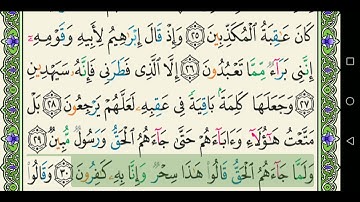 كَانَ عَـٰقِبَةُ ٱلْمُكَذِّبِينَ ٢٥ وَإِذْ قَالَ إِبْرَٰهِيمُ لِأَبِيهِ وَقَوْمِهِۦٓ
إِنَّنِى بَرَآءٌ مِّمَّا تَعْبُدُونَ ٢٦ إِلَّا ٱلَّذِى فَطَرَنِى فَإِنَّهُۥ سَيَهْدِينِ
٢٧ وَجَعَلَهَا كَلِمَةًۢ بَاقِيَةً فِى عَقِبِهِۦ لَعَلَّهُمْ يَرْجِعُونَ ٢٨ بَلْ
مَتَّعْتُ هَـٰٓؤُلَآءِ وَءَابَآءَهُمْ حَتَّىٰ جَآءَهُمُ ٱلْحَقُّ وَرَسُولٌ مُّبِينٌ ٢٩
وَلَمَّا جَآءَهُمُ ٱلْحَقُّ قَالُوا۟ هَـٰذَا سِحْرٌ وَإِنَّا بِهِۦ كَـٰفِرُونَ ٣٠ وَقَالُوا۟